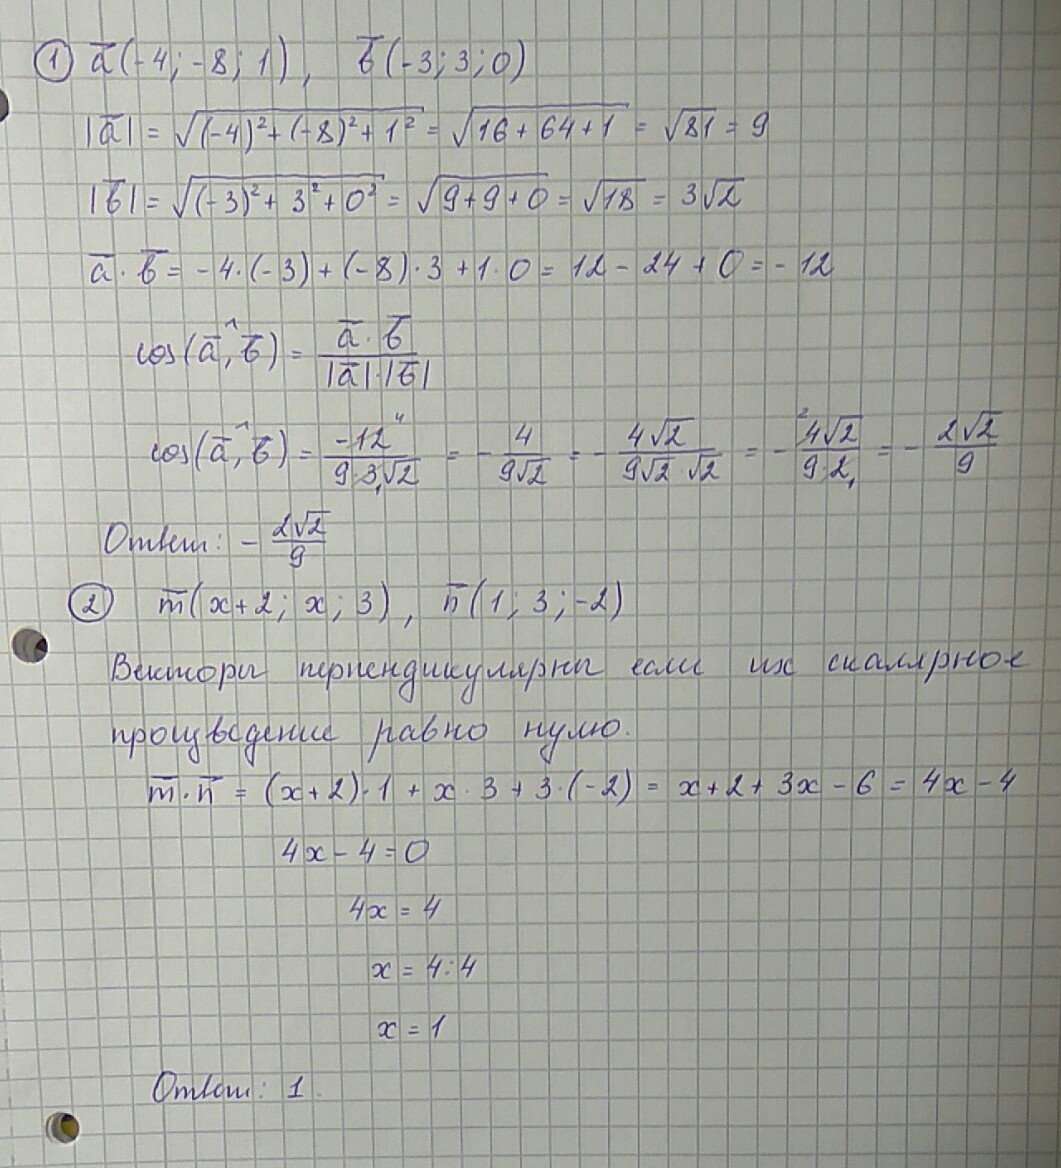 ① a̅(-4; -8; 1), b̅(-3; 3; 0)
|a̅| = √((-4)²+(-8)²+1²) = √(16+64+1) = √81 = 9
|b̅| = √((-3)²+3²+0²) = √(9+9+0) = √18 = 3√2
a̅·b̅ = -4·(-3)+(-8)·3+1·0 = 12-24+0 = -12
cos(a̅,^b̅) = (a̅·b̅)/(|a̅|·|b̅|)
cos(a̅,^b̅) = -12⁴/(9·3₁√2) = -4/(9√2) = -4√2/(9√2·√2) = -²4√2/(9·2₁) = -2√2/9
Ответ: -2√2/9
② m̅(x+2; x; 3), n̅(1; 3; -2)
Векторы перпендикулярны если их скалярное
произведение равно нулю.
m̅·n̅ = (x+2)·1+x·3+3·(-2) = x+2+3x-6 = 4x-4
4x-4=0
4x=4
x=4:4
x=1
Ответ: 1.